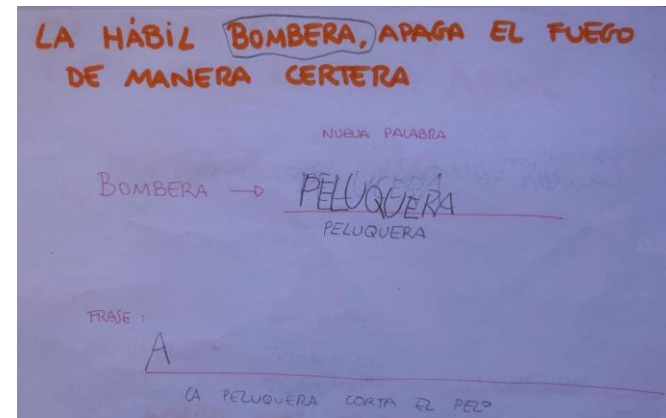 LA HÁBIL BOMBERA, APAGA EL FUEGO
DE MANERA CERTERA
NUEVA PALABRA
BOMBERA → PELUQUERA
PELUQUERA
FRASE:
A
LA PELUQUERA CORTA EL PELO